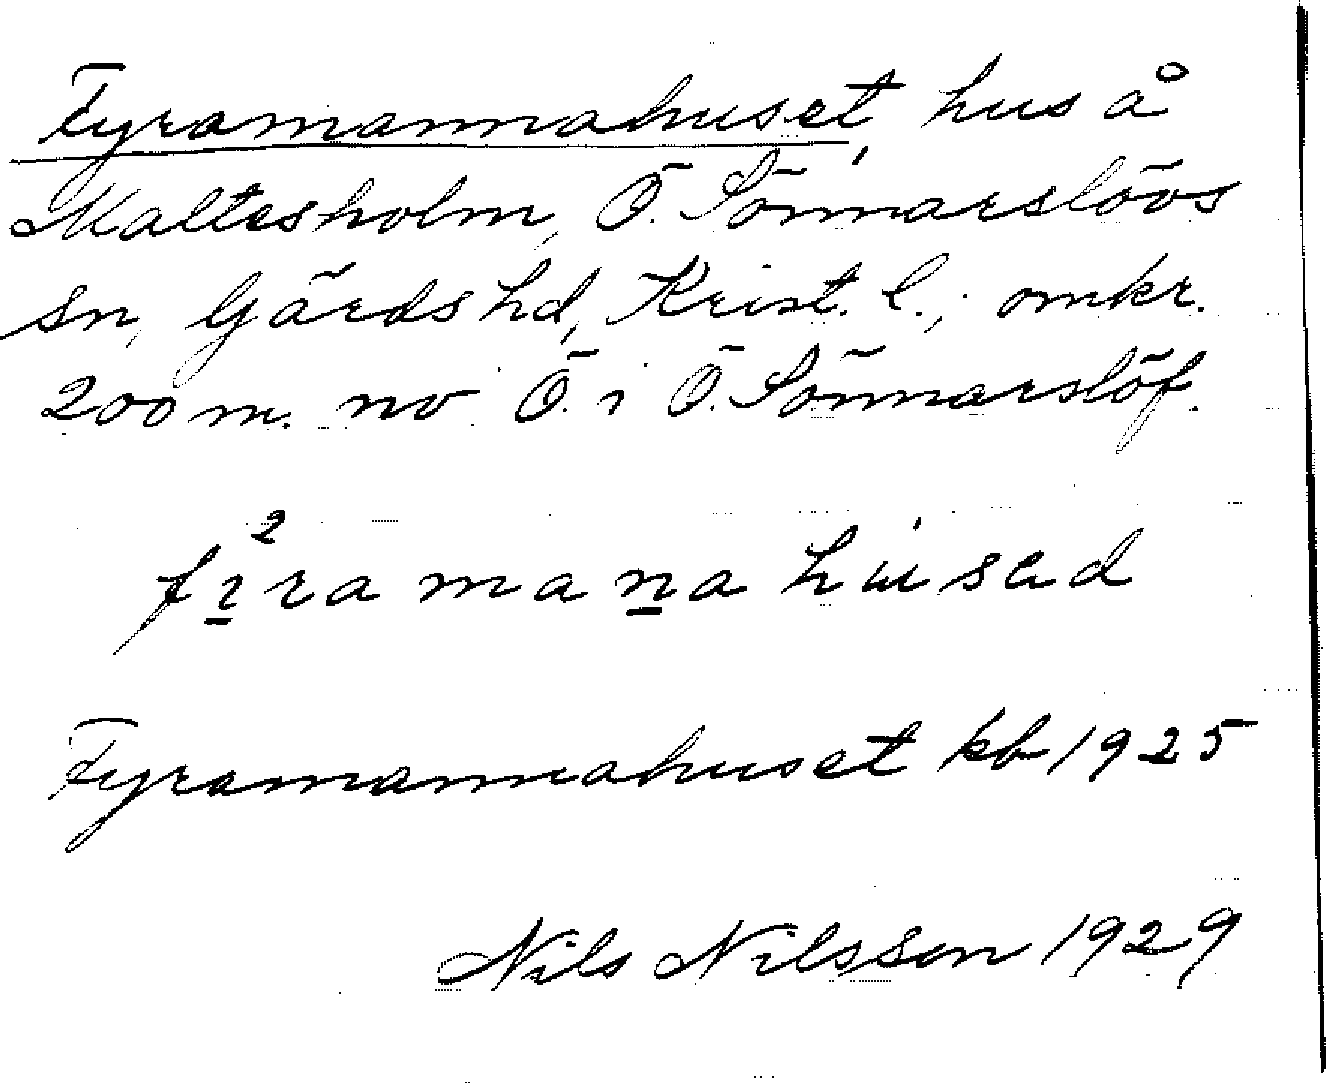 Fyramannahuset, hus å
Maltesholm, Ö. Sönnarslövs
sn, Gärds hd, Krist. l.; omkr.
200 m. nv Ö. i Ö. Sönnarslöf.
fi²ra mana húsad
Fyramannahuset kb 1925
Nils Nilsson 1929